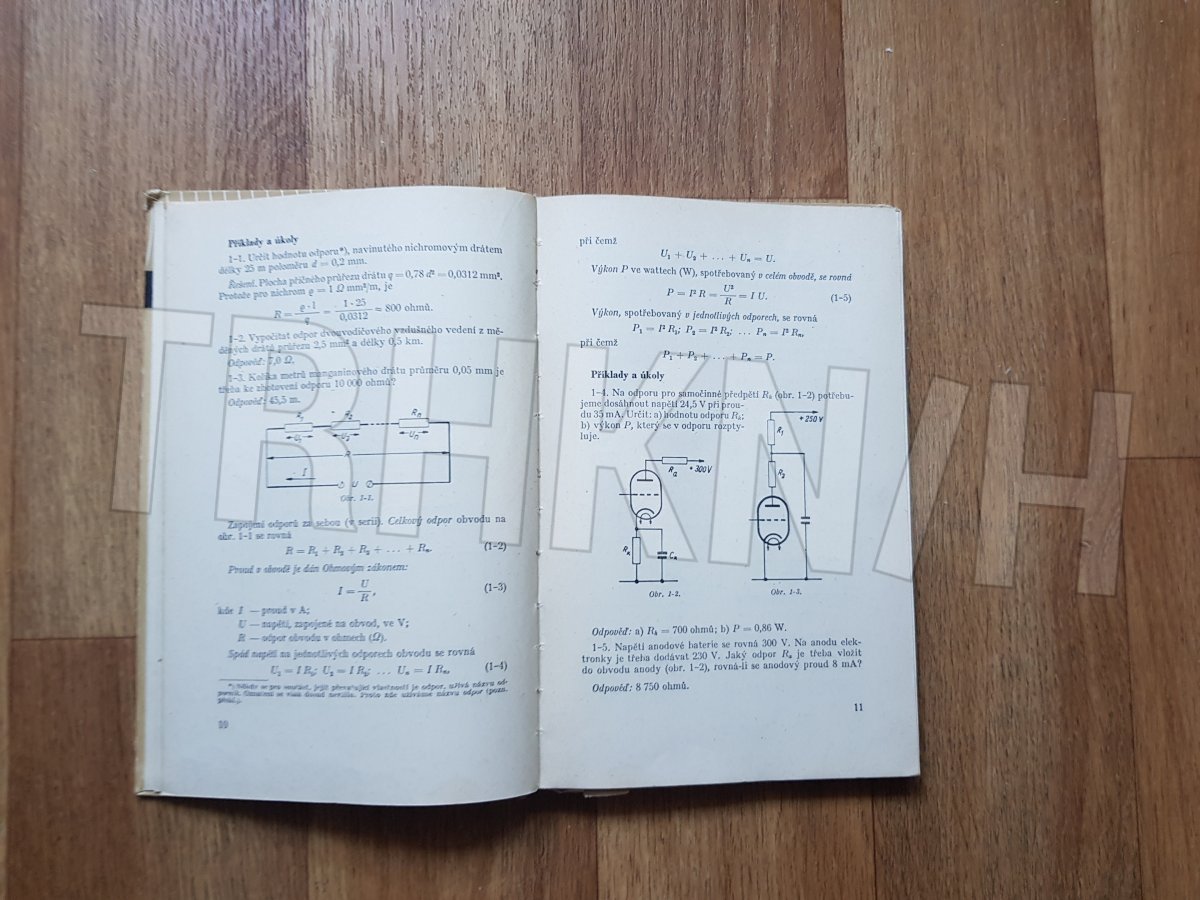 Příklady a úkoly
1–1. Určit hodnotu odporu*), navinutého nichromovým drátem
délky 25 m poloměru d = 0,2 mm.
Řešení. Plocha příčného průřezu drátu q = 0,78 d² = 0,0312 mm².
Protože pro nichrom ϱ = 1 Ω mm²/m, je
R = ϱ · l / q = 1 · 25 / 0,0312 = 800 ohmů.
1–2. Vypočítat odpor dvouvodičového vzdušného vedení z mě-
děných drátů průřezu 2,5 mm² a délky 0,5 km.
Odpověď: 7,0 Ω.
1–3. Kolika metrů manganinového drátu průměru 0,05 mm je
třeba ke zhotovení odporu 10 000 ohmů?
Odpověď: 45,5 m.
R₁ R₂ Rn
U₁ U₂ Un
R
I U
Obr. 1-1.
Zapojení odporů za sebou (v serii). Celkový odpor obvodu na
obr. 1–1 se rovná
R = R₁ + R₂ + R₃ + ... + Rn. (1–2)
Proud v obvodě je dán Ohmovým zákonem:
I = U / R, (1–3)
kde I — proud v A;
U — napětí, zapojené na obvod, ve V;
R — odpor obvodu v ohmech (Ω).
Spád napětí na jednotlivých odporech obvodu se rovná
U₁ = I R₁; U₂ = I R₂; ... Un = I Rn, (1–4)
převažující vlastností je odpor, užívá názvu od-
Proto zde užíváme názvu odpor (pozn.
10
při čemž
U₁ + U₂ + ... + Un = U.
Výkon P ve wattech (W), spotřebovaný v celém obvodě, se rovná
P = I² R = U² / R = I U. (1–5)
Výkon, spotřebovaný v jednotlivých odporech, se rovná
P₁ = I² R₁; P₂ = I² R₂; ... Pn = I² Rn,
při čemž
P₁ + P₂ + ... + Pn = P.
Příklady a úkoly
1–4. Na odporu pro samočinné předpětí Rk (obr. 1–2) potřebu-
jeme dosáhnout napětí 24,5 V při prou-
du 35 mA. Určit: a) hodnotu odporu Rk;
b) výkon P, který se v odporu rozpty-
luje.
Ra + 300 V
Rk Ck
Obr. 1-2.
+ 250 V
R₁
R₂
Obr. 1-3.
Odpověď: a) Rk = 700 ohmů; b) P = 0,86 W.
1–5. Napětí anodové baterie se rovná 300 V. Na anodu elek-
tronky je třeba dodávat 230 V. Jaký odpor Ra je třeba vložit
do obvodu anody (obr. 1–2), rovná-li se anodový proud 8 mA?
Odpověď: 8 750 ohmů.
11